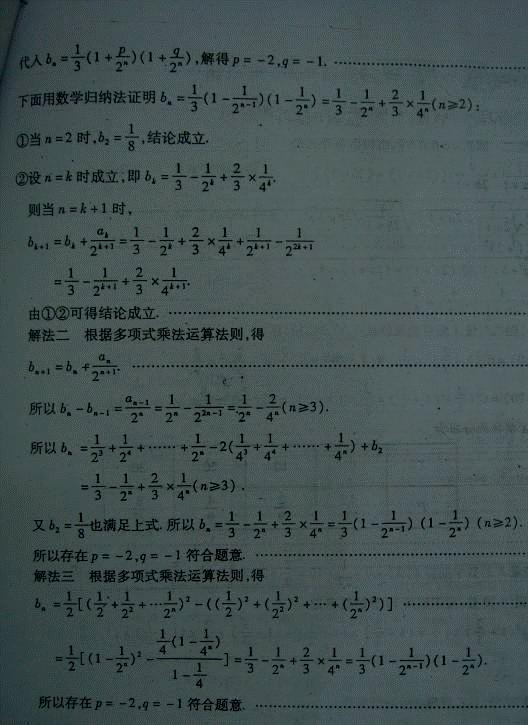 代入 b_n = 1/3(1 + p/2^n)(1 + q/2^n), 解得 p = -2, q = -1. ……………………
下面用数学归纳法证明 b_n = 1/3(1 - 1/2^{n-1})(1 - 1/2^n) = 1/3 - 1/2^n + 2/3 × 1/4^n (n≥2);
①当 n = 2 时, b_2 = 1/8, 结论成立.
②设 n = k 时成立, 即 b_k = 1/3 - 1/2^k + 2/3 × 1/4^k.
则当 n = k + 1 时,
b_{k+1} = b_k + a_k/2^{k+1} = 1/3 - 1/2^k + 2/3 × 1/4^k + 1/2^{k+1} - 1/2^{2k+1}
= 1/3 - 1/2^{k+1} + 2/3 × 1/4^{k+1}.
由①②可得结论成立. ……………………
解法二 根据多项式乘法运算法则, 得
b_{n+1} = b_n + a_n/2^{n+1}. ……………………
所以 b_n - b_{n-1} = a_{n-1}/2^n = 1/2^n - 1/2^{2n-1} = 1/2^n - 2/4^n (n≥3).
所以 b_n = 1/2^3 + 1/2^4 + …… + 1/2^n - 2(1/4^3 + 1/4^4 + …… + 1/4^n) + b_2
= 1/3 - 1/2^n + 2/3 × 1/4^n (n≥3).
又 b_2 = 1/8 也满足上式. 所以 b_n = 1/3 - 1/2^n + 2/3 × 1/4^n = 1/3(1 - 1/2^{n-1})(1 - 1/2^n) (n≥2).
所以存在 p = -2, q = -1 符合题意. ……………………
解法三 根据多项式乘法运算法则, 得
b_n = 1/2[(1/2 + 1/2^2 + … 1/2^n)^2 - ((1/2)^2 + (1/2^2)^2 + … + (1/2^n)^2)] ……………………
= 1/2[(1 - 1/2^n)^2 - (1/4(1 - 1/4^n))/(1 - 1/4)] = 1/3 - 1/2^n + 2/3 × 1/4^n = 1/3(1 - 1/2^{n-1})(1 - 1/2^n).
所以存在 p = -2, q = -1 符合题意. ……………………